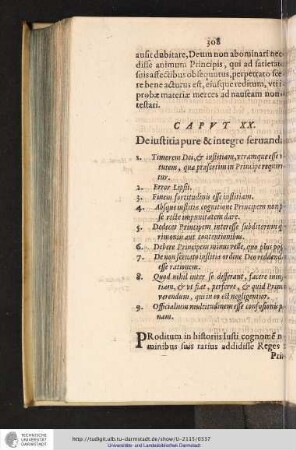 308
ausit dubitare, Deum non abominari nec
disse animum Principis, qui ad satietat
suis affectibus obsequutus, perpetrato sce
re bene acturus est, eiusque reditum, vti i
probæ materiæ merces ad nauseam non
testari.
CAPVT XX.
De iustitia pure & integre seruand
1. Timorem Dei, & iustitiam, vtramque esse
tutem, quæ præsertim in Principe requir
tur.
2. Error Lipsii.
3. Finem fortitudinis esse iustitiam.
4. Absque iustitiæ cognitione Principem non
se recte imperitare dare.
5. Dedecet Principem interesse subditorum
rimoniis aut contentionibus.
6. Debere Principem minus velle, quo plus
7. De non seruato iustitiæ ordine Deo reddend
esse rationem.
8. Quod nihil inter se differant, facere iniu
tiam, & vt fiat, perferre, & quid Prim
verendum, qui in eo est negligentior.
9. Officialium multitudinem esse
nam.
PRoditum in historiis Iusti cognomē n
minibus suis rarius addidisse Reges
Prin
TECHNISCHE
UNIVERSITÄT
DARMSTADT
http://tudigit.ulb.tu-darmstadt.de/show/G-2115/0337
Universitäts- und Landesbibliothek Darmstadt